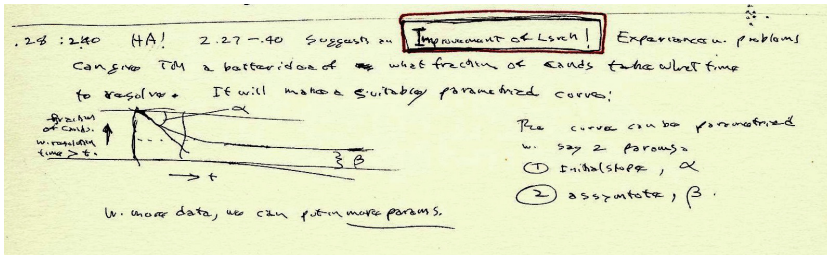 .28 : 2.40 HA! 2.27-.40 Suggests an Improvement of Lsrch! Experience w. problems
can give TM a better idea of what fraction of cands take what time
to resolve. It will make a suitably parametrized curve:
α
fraction
of cands.
w. resolution
time > t.
β
→ t
The curve can be parametrized
w. say 2 params:
① Initial slope, α
② assymtote, β.
W. more data, we can put in more params.